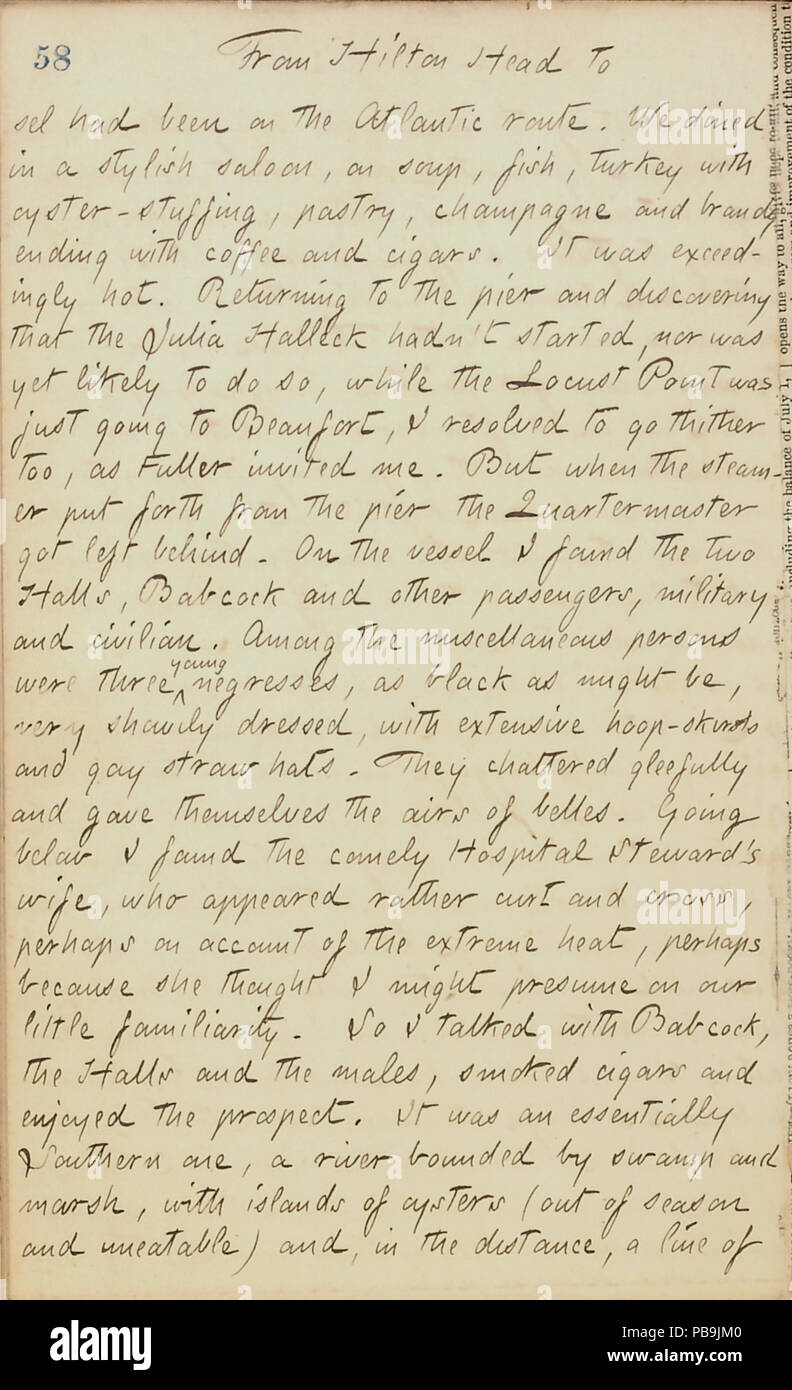 58 From Hilton Head to
sel had been on the Atlantic route. We dined
in a stylish saloon, on soup, fish, turkey with
oyster-stuffing, pastry, champagne and brandy
ending with coffee and cigars. It was exceed-
ingly hot. Returning to the pier and discovering
that the Julia Halleck hadn't started, nor was
yet likely to do so, while the Locust Point was
just going to Beaufort, I resolved to go thither
too, as Fuller invited me. But when the steam-
er put forth from the pier the Quartermaster
got left behind. On the vessel I found the two
Halls, Babcock and other passengers, military
and civilian. Among the miscellaneous persons
were three young negresses, as black as might be,
very showily dressed, with extensive hoop-skirts
and gay straw hats. They chattered gleefully
and gave themselves the airs of belles. Going
below I found the comely Hospital Steward's
wife, who appeared rather curt and cross,
perhaps on account of the extreme heat, perhaps
because she thought I might presume on our
little familiarity. So I talked with Babcock,
the Halls and the males, smoked cigars and
enjoyed the prospect. It was an essentially
Southern one, a river bounded by swamp and
marsh, with islands of oysters (out of season
and uneatable) and, in the distance, a line of
opens the way to all
including the balance of July 1,
alamy
Image ID: PB9JM0
www.alamy.com